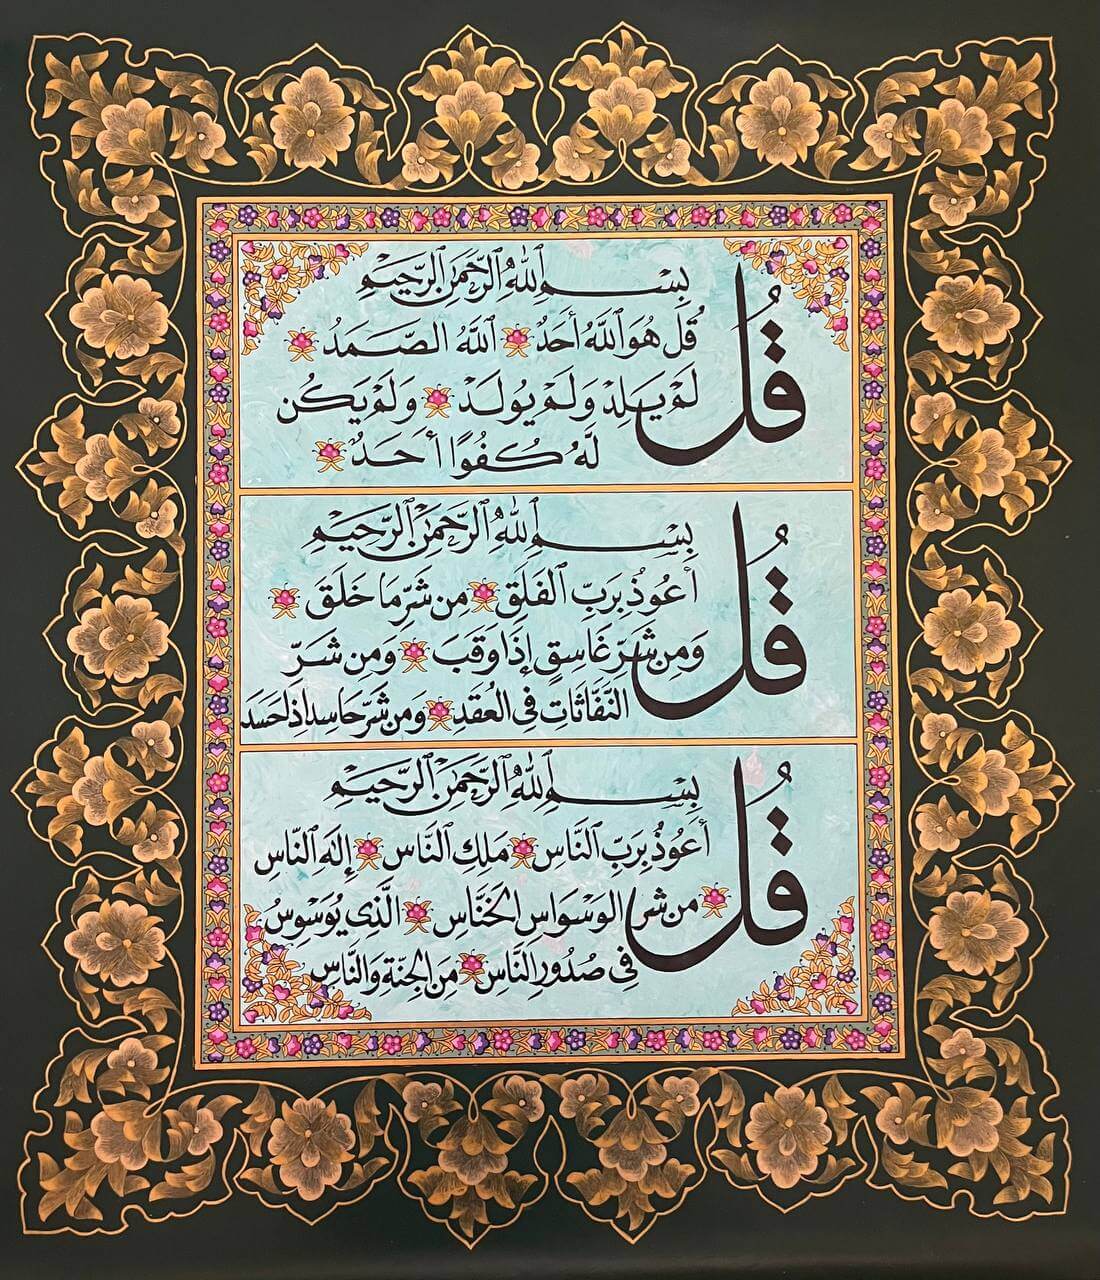 بِسْمِ ٱللَّهِ ٱلرَّحْمَٰنِ ٱلرَّحِيمِ
قُل
قُلْ هُوَ ٱللَّهُ أَحَدٌ ٱللَّهُ الصَّمَدُ
لَمْ يَلِدْ وَلَمْ يُولَدْ وَلَمْ يَكُن
لَّهُ كُفُوًا أَحَدٌ
بِسْمِ ٱللَّهِ ٱلرَّحْمَٰنِ ٱلرَّحِيْمِ
قُل
أَعُوذُ بِرَبِّ ٱلفَلَقِ مِن شَرِّ مَا خَلَقَ
وَمِن شَرِّ غَاسِقٍ إِذَا وَقَبَ وَمِن شَرِّ
النَّفَّاثَاتِ فِى العُقَدِ وَمِن شَرِّ حَاسِدٍ إِذَا حَسَدَ
بِسْمِ ٱللَّهِ ٱلرَّحْمَٰنِ ٱلرَّحِيمِ
قُل
أَعُوذُ بِرَبِّ ٱلنَّاسِ مَلِكِ ٱلنَّاسِ إِلَٰهِ ٱلنَّاسِ
مِن شَرِّ الوَسْوَاسِ الخَنَّاسِ الَّذِى يُوَسْوِسُ
فِى صُدُورِ النَّاسِ مِنَ الجِنَّةِ وَالنَّاسِ